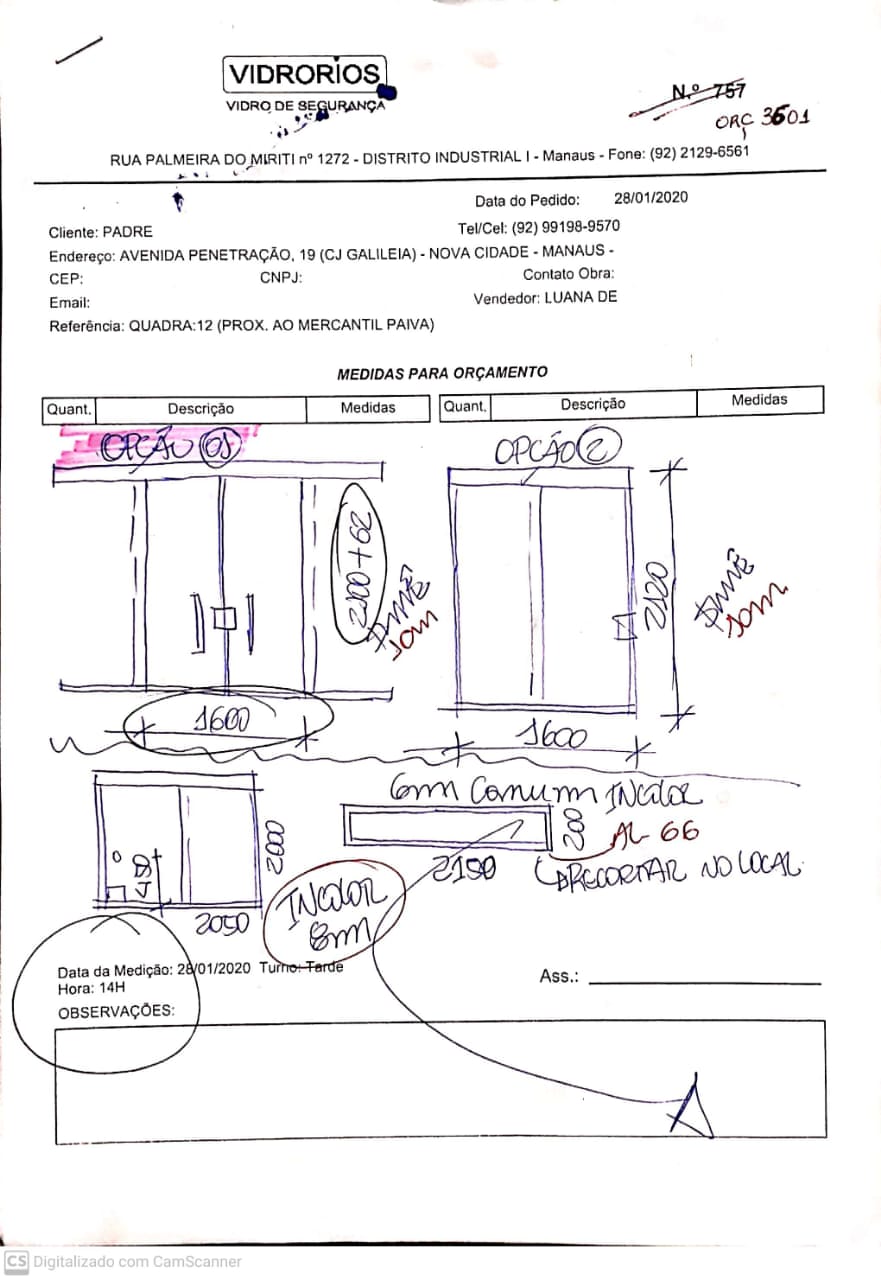 VIDRORIOS
VIDRO DE SEGURANÇA
N.º 757
ORÇ 3601
RUA PALMEIRA DO MIRITI nº 1272 - DISTRITO INDUSTRIAL I - Manaus - Fone: (92) 2129-6561
Data do Pedido: 28/01/2020
Cliente: PADRE Tel/Cel: (92) 99198-9570
Endereço: AVENIDA PENETRAÇÃO, 19 (CJ GALILEIA) - NOVA CIDADE - MANAUS -
CEP: CNPJ: Contato Obra:
Email: Vendedor: LUANA DE
Referência: QUADRA:12 (PROX. AO MERCANTIL PAIVA)
MEDIDAS PARA ORÇAMENTO
Quant. Descrição Medidas Quant. Descrição Medidas
OPÇÃO 01 OPÇÃO 2
2100+62
10m
2120
10m
1600
1600
6m Comum INcolor
200
AL 66
2150
RECORTAR NO LOCAL
2000
2050
INcolor
8m
Data da Medição: 28/01/2020 Turno: Tarde
Hora: 14H
Ass.:
OBSERVAÇÕES:
CS Digitalizado com CamScanner